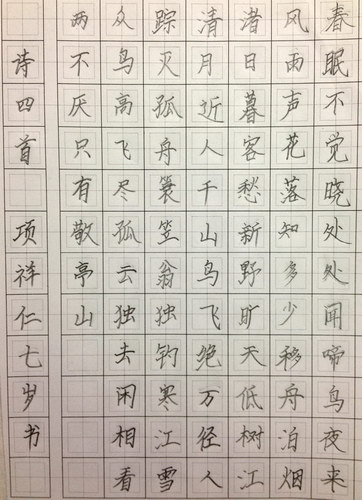 春眠不觉晓处处闻啼鸟夜来
风雨声花落知多少移舟泊烟
渚日暮客愁新野旷天低树江
清月近人千山鸟飞绝万径人
踪灭孤舟蓑笠翁独钓寒江雪
众鸟高飞尽孤云独去闲相看
两不厌只有敬亭山
诗四首 项祥仁七岁书